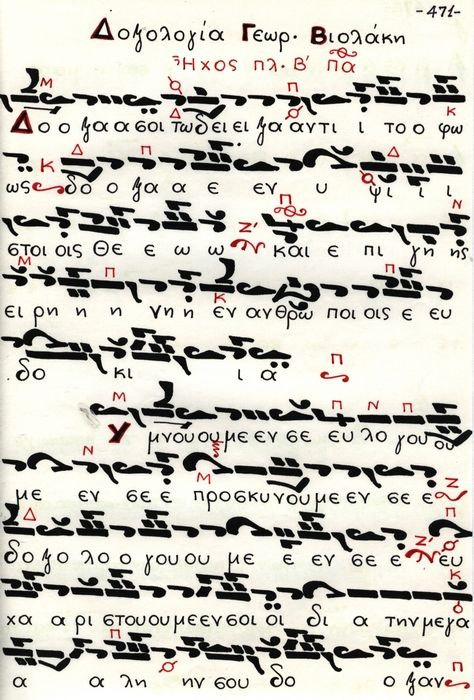 -471-
Δοξολογία Γεωρ. Βιολάκη
Ἦχος πλ. Β΄ Πα
Δο ο ξα α σοι τω δει ει ξα αν τι ι το ο φω
ως δο ο ξα α ε εν υ ψι ι ι
στοι οις Θε ε ω ω και ε πι γη ης
ει ρη η η νη η εν αν θρω ποι οις ε ευ
δο κι ι α
Υ μνου ου με εν σε ευ λο γου ου
με εν σε ε προ σκυ νου με εν σε ε
δο ξο λο ο γου ου με ε εν σε ε ευ
χα α ρι στου ου με εν σοι οι δι α την με γα
α α λη ην σου δο ο ξαν